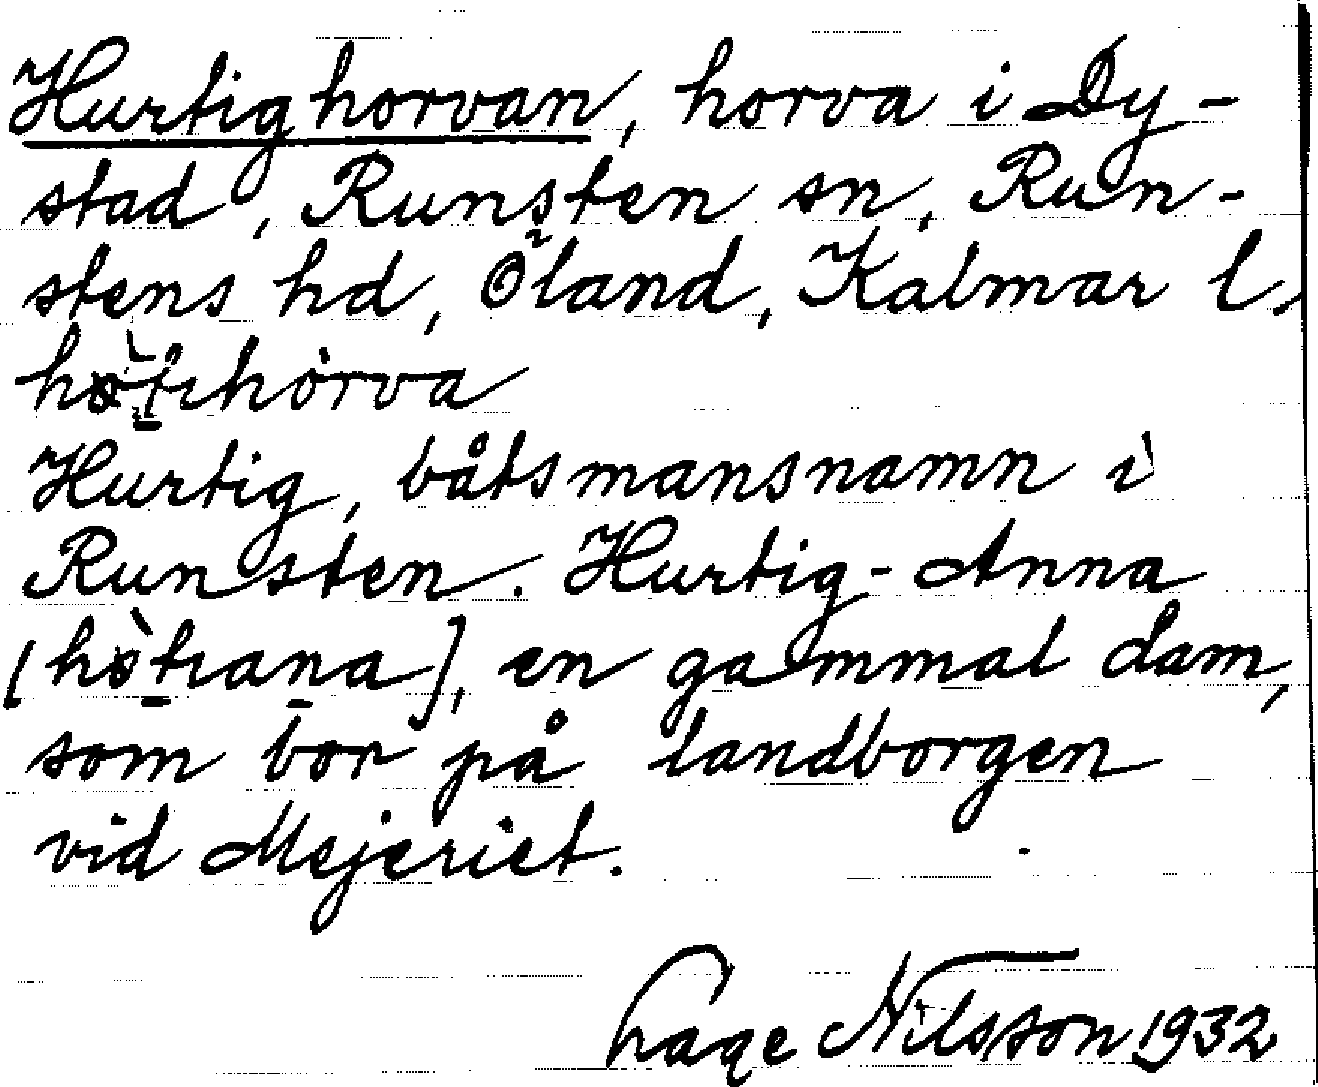 Hurtighorvan, horva i Dy-
stad, Runsten sn, Run-
stens hd, Öland, Kalmar l.
Hurtig, båtsmansnamn i
Runsten. Hurtig-Anna
[hò̱tıaṉa], en gammal dam,
som bor på landborgen
vid Mejeriet.
Nilsson 1932